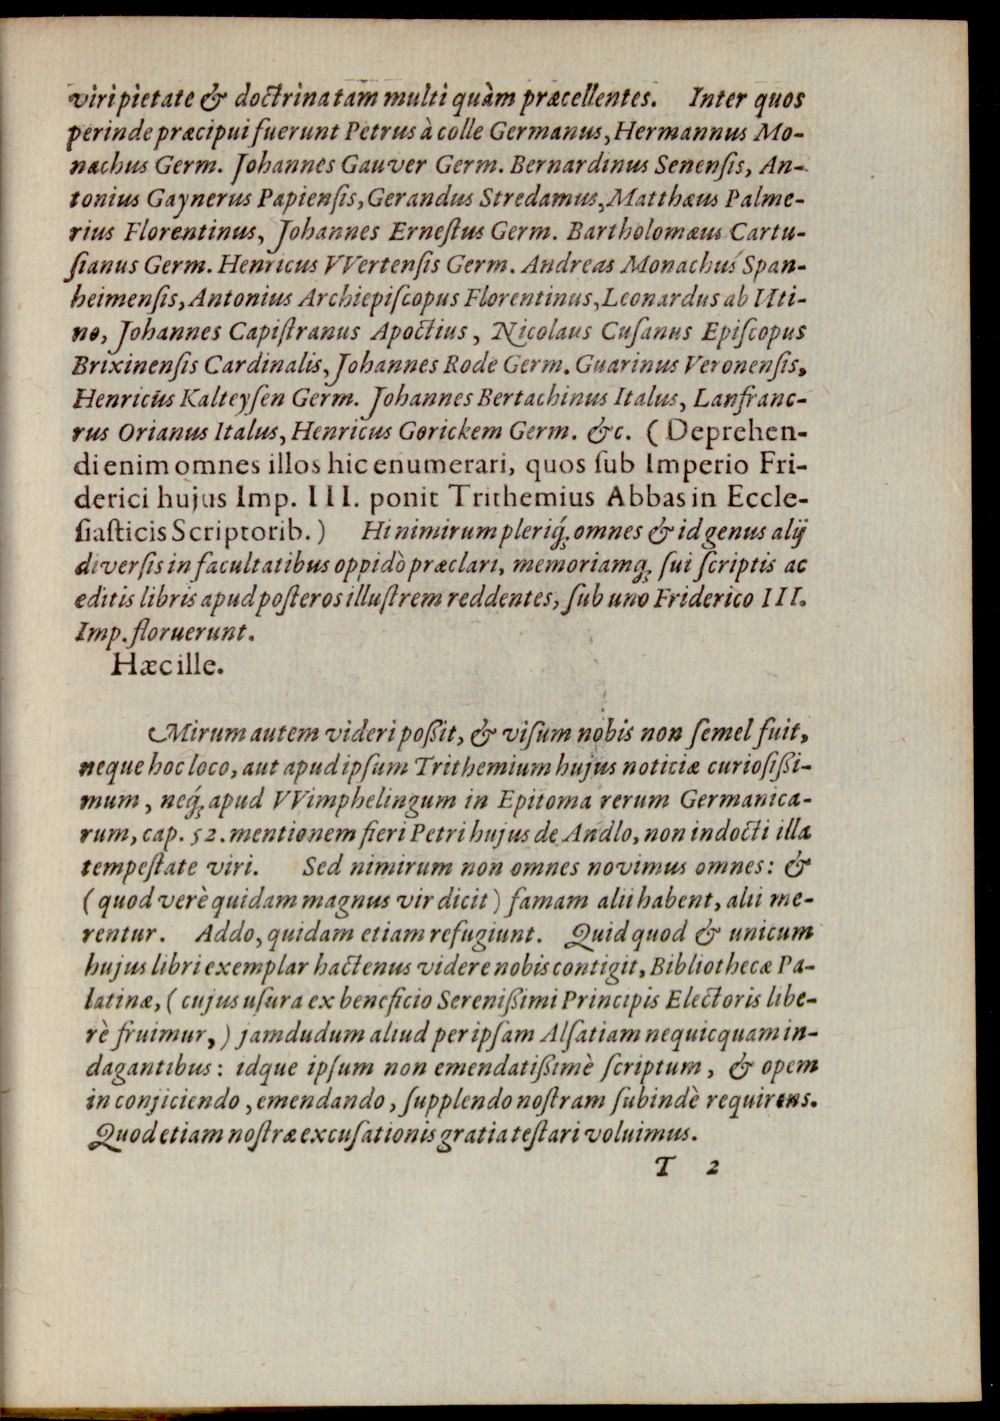 viri pietate & doctrina tam multi quàm præcellentes. Inter quos
perinde præcipui fuerunt Petrus à colle Germanus, Hermannus Mo-
nachus Germ. Johannes Gauver Germ. Bernardinus Senenſis, An-
tonius Gaynerus Papienſis, Gerandus Stredamus, Matthæus Palme-
rius Florentinus, Johannes Erneſtus Germ. Bartholomæus Cartu-
ſianus Germ. Henricus VVertenſis Germ. Andreas Monachus Span-
heimenſis, Antonius Archiepiſcopus Florentinus, Leonardus ab Uti-
no, Johannes Capiſtranus Apoctius, Nicolaus Cuſanus Epiſcopus
Brixinenſis Cardinalis, Johannes Rode Germ. Guarinus Veronenſis,
Henricus Kalteyſen Germ. Johannes Bertachinus Italus, Lanfranc-
rus Orianus Italus, Henricus Gorickem Germ. &c. (Deprehen-
di enim omnes illos hic enumerari, quos ſub Imperio Fri-
derici hujus Imp. III. ponit Trithemius Abbas in Eccle-
ſiaſticis Scriptorib.) Hi nimirum pleriq́; omnes & id genus alij
diverſis in facultatibus oppidò præclari, memoriamq; ſui ſcriptis ac
editis libris apud poſteros illuſtrem reddentes, ſub uno Friderico III.
Imp. floruerunt.
Hæc ille.
Mirum autem videri poßit, & viſum nobis non ſemel fuit,
neque hoc loco, aut apud ipſum Trithemium hujus noticiæ curioſißi-
mum, neq́; apud VVimphelingum in Epitoma rerum Germanica-
rum, cap. 52. mentionem fieri Petri hujus de Andlo, non indocti illa
tempeſtate viri. Sed nimirum non omnes novimus omnes: &
(quod verè quidam magnus vir dicit) famam alii habent, alii me-
rentur. Addo, quidam etiam refugiunt. Quid quod & unicum
hujus libri exemplar hactenus videre nobis contigit, Bibliothecæ Pa-
latinæ, (cujus uſura ex beneficio Sereniſſimi Principis Electoris libe-
rè fruimur,) jamdudum aliud per ipſam Alſatiam nequicquam in-
dagantibus: idque ipſum non emendatißimè ſcriptum, & opem
in conjiciendo, emendando, ſupplendo noſtram ſubindè requirens.
Quod etiam noſtræ excuſationis gratia teſtari voluimus.
T 2